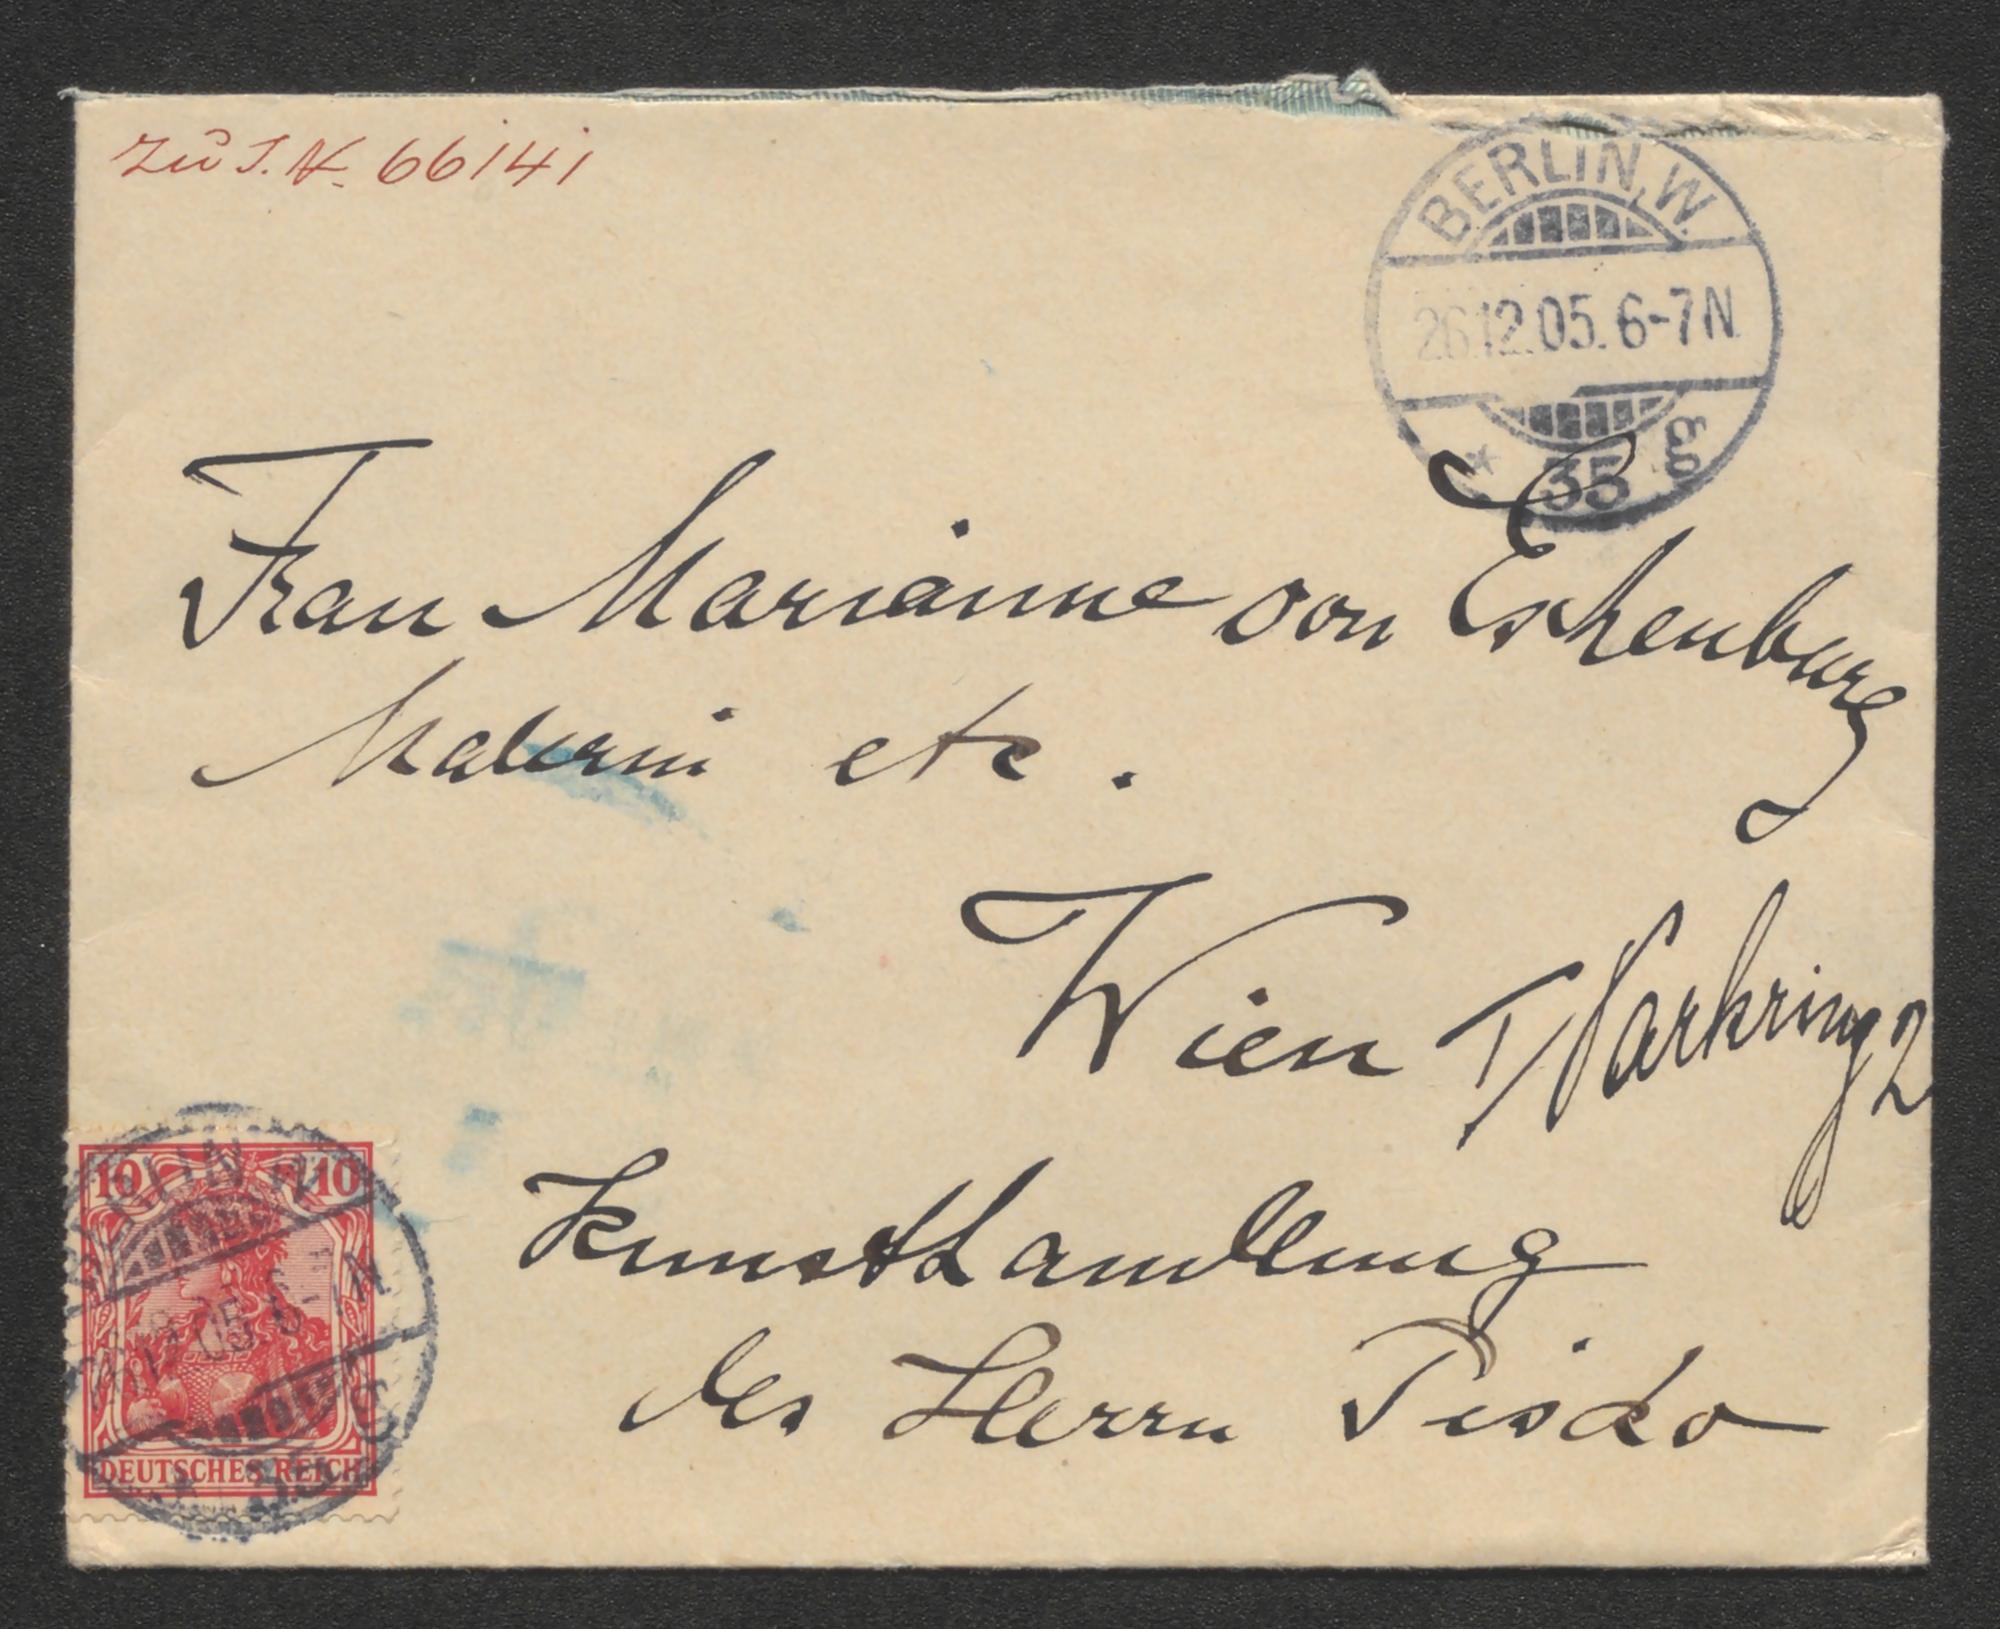 Zu I.N. 66141
BERLIN, W.
26.12.05. 6-7N.
* 35 g
Frau Marianne von Eschenburg
Malerin etc.
Wien I/ Parkring 2
Kunsthandlung
des Herrn Pisko
10 10
BERLIN W
26.12.05. 6-7N
DEUTSCHES REICH